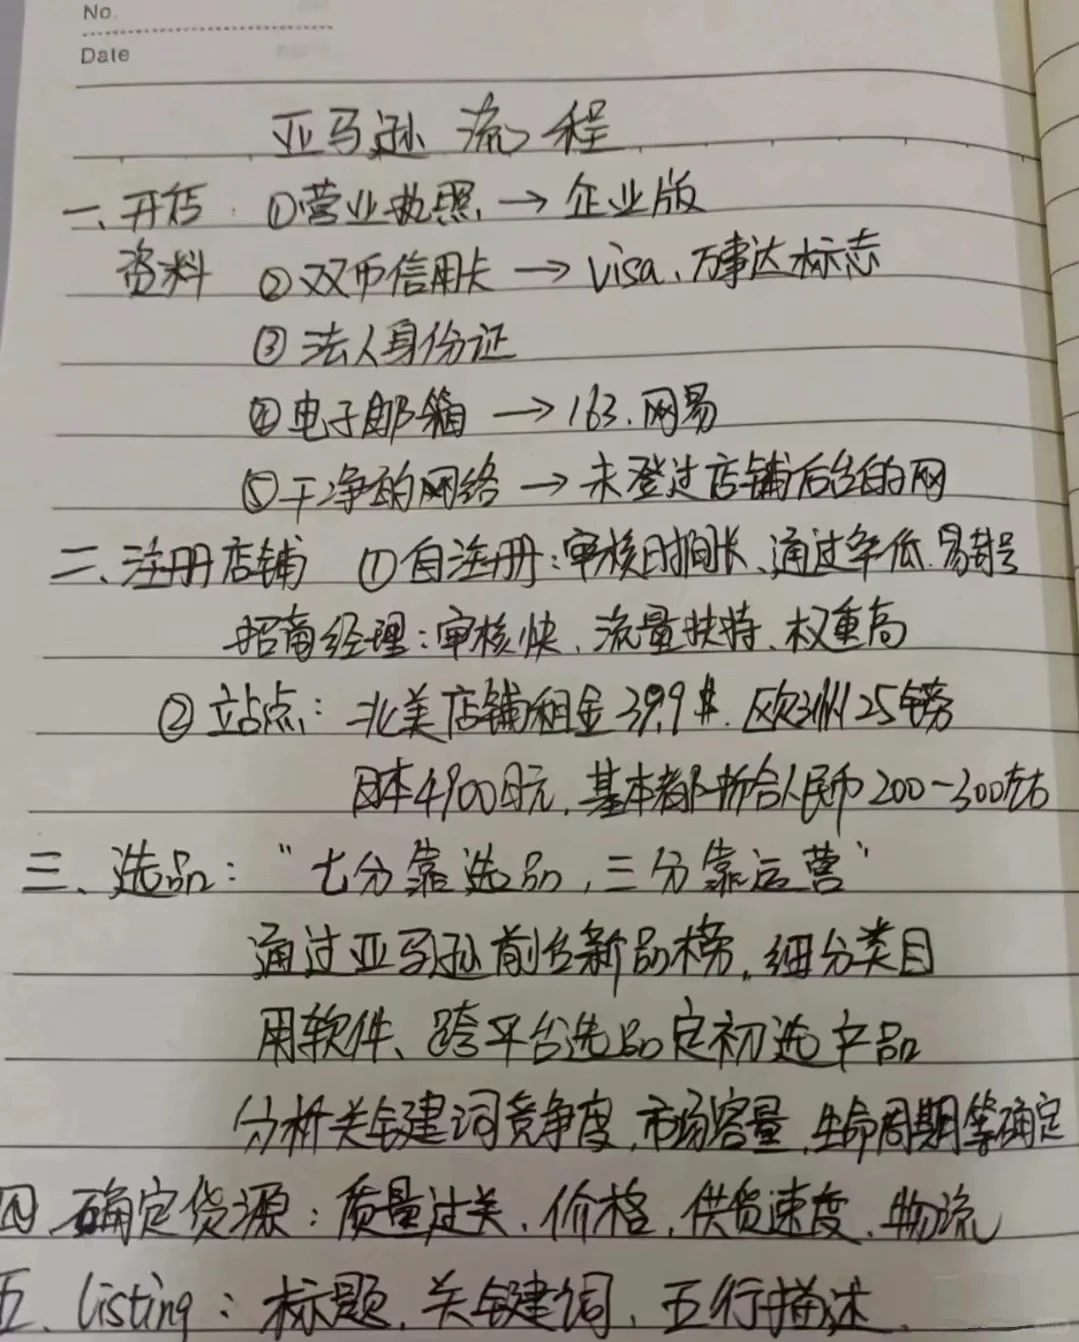 No.
Date
亚马逊 流程
一、开店 ①营业执照 → 企业版
资料 ②双币信用卡 → Visa、万事达标志
③法人身份证
④电子邮箱 → 163.网易
⑤干净的网络 → 未登过店铺后台的网
二、注册店铺 ①自注册:审核时间长、通过率低.易封号
招商经理:审核快、流量扶持、权重高
②站点:北美店铺租金39.9$.欧洲25镑
日本4900日元,基本都折合人民币200-300左右
三、选品:"七分靠选品,三分靠运营"
通过亚马逊前台新品榜,细分类目
用软件、跨平台选品定初选产品
分析关键词竞争度,市场容量,生命周期等确定
四 确定货源:质量过关、价格,供货速度、物流
五. listing:标题,关键词,五行描述